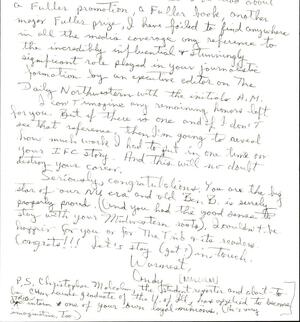 a Fuller promotion, a Fuller book, another
major Fuller prize, I have failed to find anywhere
in all the media coverage any reference to
the incredibly influential & stunningly
significant role played in your journalistic
formation by an executive editor on The
Daily Northwestern with the initials A.M.
I can't imagine any remaining honors left
for you. But if there is one and if I don't
see that reference, then I'm going to reveal
how much work I had to put in one time on
your IFC story. And this will no doubt
destroy your career.
Seriously, congratulations. You are the big
star of our NU era and old Ben B. is surely
properly proud. (And you had the good sense to
stay with your Midwestern roots). Couldn't be
happier for you or for The Trib & its readers.
Congrats!!! Let's stay (get?) in touch.
Warmest,
Andy (Malcolm)
P.S. Christopher Malcolm, the student reporter and about to
be graduate of the U. of has applied to become
intern & one of your own minions. (he's very
imaginative, too.)